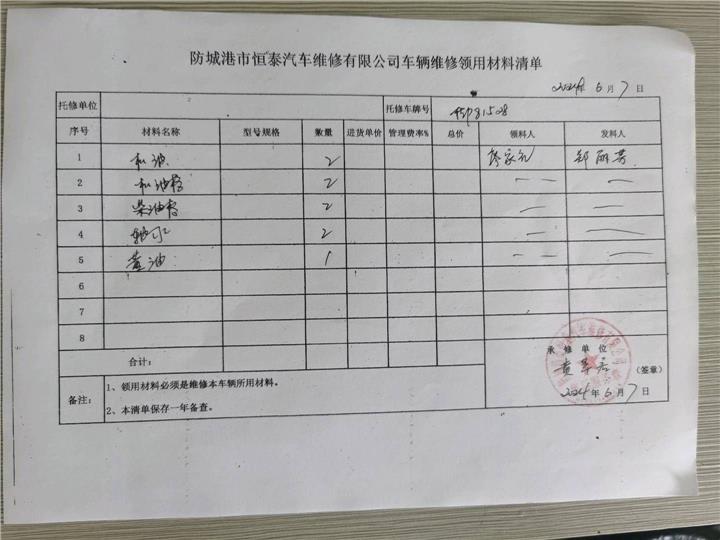 防城港市恒泰汽车维修有限公司车辆维修领用材料清单
2024年6月7日
托修单位 托修车牌号
序号 材料名称 型号规格 数量 进货单价 管理费率% 总价 领料人 发料人
1 机油 2 郑丽芳
2 机油格 2
3 柴油格 2
4 2
5 黄油 1
6
7
8
合计:
承修单位
(签章)
2024年6月7日
备注: 1、领用材料必须是维修本车辆所用材料。
2、本清单保存一年备查。